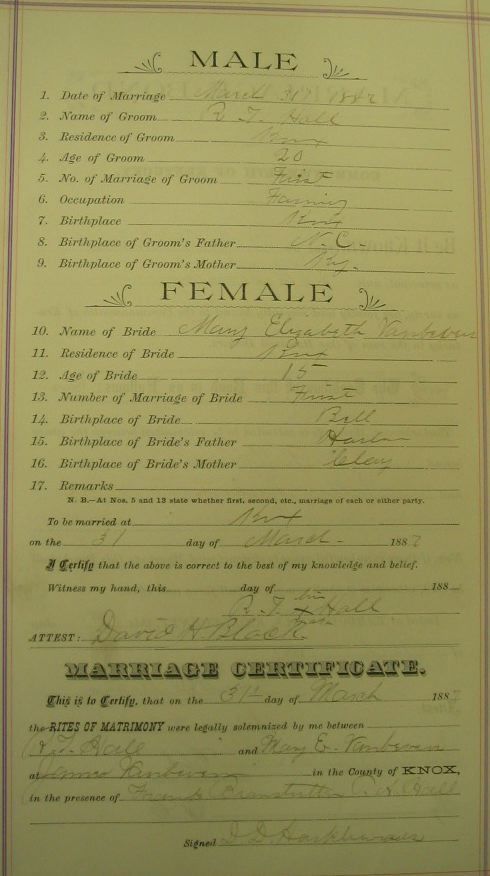 MALE
1. Date of Marriage March 31st 1887
2. Name of Groom R. T. Hall
3. Residence of Groom Knox
4. Age of Groom 20
5. No. of Marriage of Groom First
6. Occupation Farming
7. Birthplace Knox
8. Birthplace of Groom's Father N. C.
9. Birthplace of Groom's Mother Ky.
FEMALE
10. Name of Bride Mary Elizabeth Vanbever
11. Residence of Bride Knox
12. Age of Bride 15
13. Number of Marriage of Bride First
14. Birthplace of Bride Bell
15. Birthplace of Bride's Father Harlan
16. Birthplace of Bride's Mother Clay
17. Remarks
N. B.—At Nos. 5 and 13 state whether first, second, etc., marriage of each or either party.
To be married at Knox
on the 31 day of March 1887
I Certify that the above is correct to the best of my knowledge and belief.
Witness my hand, this day of 188
his
R. T. x Hall
ATTEST: David H. Black
MARRIAGE CERTIFICATE.
This is to Certify, that on the 31st day of March 1887
the RITES OF MATRIMONY were legally solemnized by me between
R. T. Hall and Mary E. Vanbever
at Vanbever in the County of KNOX,
in the presence of Hall
Signed D. D.